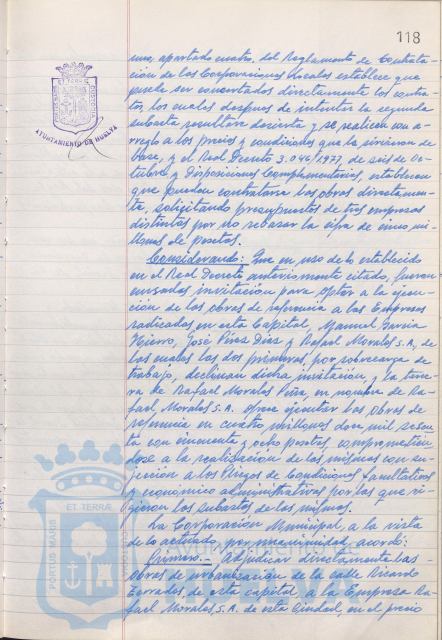 118
uno, apartado cuatro, del Reglamento de Contrata-
ción de las Corporaciones Locales establece que
puede ser concertados directamente los contra-
tos, los cuales despues de intentar la segunda
subasta resultare desierta y se realicen con a-
rreglo a los precios y condiciones que la sirvieron de
base, y el Real Decreto 3.046/1977, de seis de Oc-
tubre y Disposiciones Complementarias, establecen
que puedan contratarse las obras directamen-
te, solicitando presupuestos de tres empresas
distintas por no rebasar la cifra de cinco mi-
llones de pesetas.
Considerando: Que en uso de lo establecido
en el Real Decreto anteriormente citado, fueron
enviadas invitación para optar a la ejecu-
ción de las obras de referencia a las Empresas
radicadas en esta Capital, Manuel García
Hierro, José Pérez Días y Rafael Morales S.A, de
las cuales las dos primeras, por sobrecarga de
trabajo, declinan dicha invitación y la terce-
ra de Rafael Morales Peña, en nombre de Ra-
fael Morales S.A. ofrece ejecutar las obras de
referencia en cuatro millones dos mil sesen-
ta con cincuenta y ocho pesetas, comprometién-
dose a la realización de las mismas con su-
jección a los Pliegos de Condiciones facultativas
y económico administrativas por las que ri-
gieron las subastas de las mismas.
La Corporación Municipal, a la vista
de lo actuado, por unanimidad, acordó:
Primero.- Adjudicar directamente las
obras de urbanización de la calle Ricardo
Terrades, de esta capital, a la Empresa Ra-
fael Morales, S.A. de esta Ciudad, en el precio
AYUNTAMIENTO DE HUELVA
PORTUS MARIS
ET TERRÆ